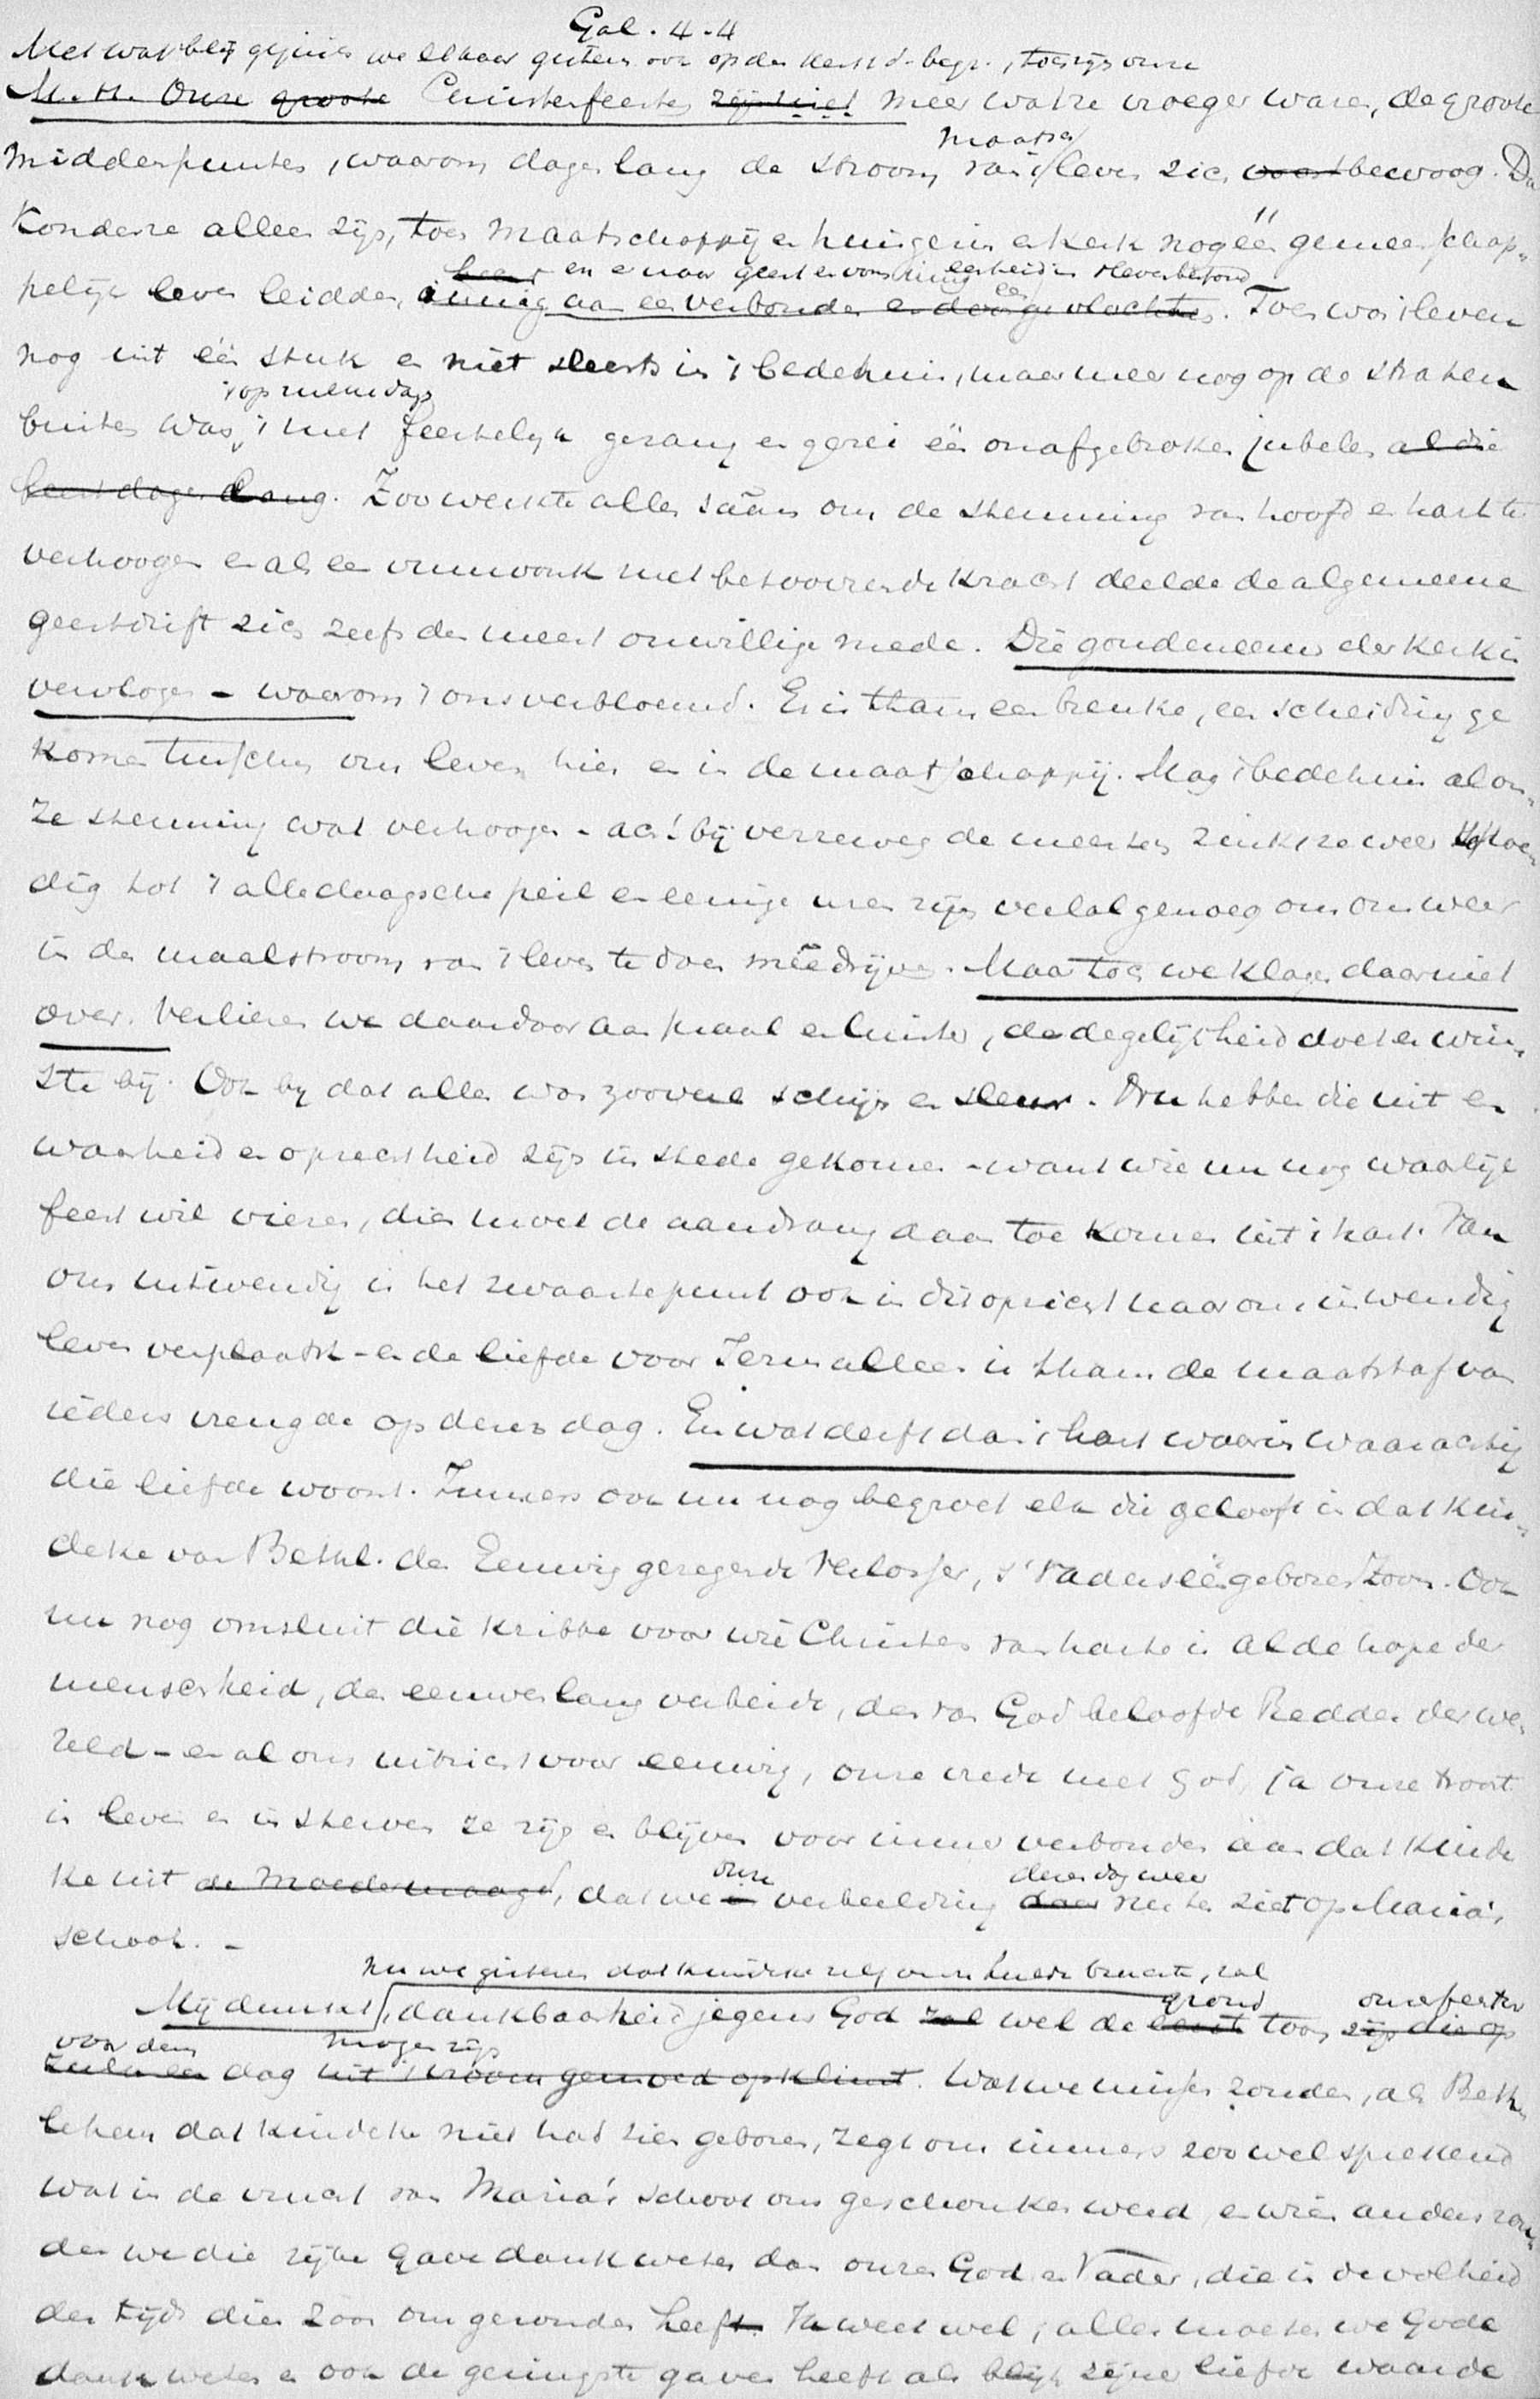 Gal. 4-4
Met wat blij gejuich we elkaar gisteren ook op den kerstd. begr., toch zijn onze
M.H. Onze groote Christenfeesten zijn niet meer wat ze vroeger waren, de groote
maatsch.
middenpunten, waarom dagen lang de stroom van 't leven zich voortbewoog. Dat
konden ze alleen zijn, toen maatschappij en huisgezin en kerk nog één gemeenschap-
en naar geest en vorm innig eenheid in
pelijk leven leidden, innig aan een verbonden en dooreengevlochten. Toen was 't leven
nog uit één stuk en niet slechts in 't bedehuis, maar meer nog op de straten
buiten was 't met feestelijk gezang en gerei één onafgebroken jubelen al die
feestdagen lang. Zoo werkte alles saâm om de stemming van hoofd en hart te
verhoogen en als een vuurvonk met betooverende kracht deelde de algemeene
geestdrift zich zelfs den meest onwillige mede. Die gouden eeuw der kerk is
vervlogen - waarom 't ons verbloemd. Er is thans een breuke, een scheiding ge
komen tusschen ons leven hier en in de maatschappij. Mag 't bedehuis al on-
ze stemming wat verhoogen - ach! bij verreweg de meesten zinkt ze weer spoe-
dig tot 't alledaagsche peil en eenige uren zijn veelal genoeg om ons weer
in den maalstroom van 't leven te doen meêdrijven. Maar toch we klagen daar niet
over. Verliezen we daardoor aan praal en luister, de degelijkheid doet er win-
ste bij. Ook bij dat alles was zooveel schijn en sleur. Nu hebben die uit en
waarheid en oprechtheid zijn in stede gekomen - want wie nu nog waarlijk
feest wil vieren, dien moet de aandrang daar toe komen uit 't hart. Van
ons uitwendig is het zwaartepunt ook in dit opzicht naar ons inwendig
leven verplaatst - en de liefde voor Jezus alleen is thans de maatstaf van
ieders vreugde op dezen dag. En wat derft dan 't hart waarin waarachtig
die liefde woont. Immers ook nu nog begroet elk die gelooft in dat kin-
deke van Bethl. den Eeuwig gezegende Verlosser, 's Vaders ééngeboren Zoon. Ook
nu nog omsluit die kribbe voor wie Christen van harte is al de hope der
menscheid, den eeuwen lang verbeide, den van God beloofde Redder der we-
reld - en al ons uitzicht voor eeuwig, onze vrede met God, ja onze troost
in leven en in sterven ze zijn en blijven voor immer verbonden aan dat kinde
onze dezen dag weer
ke uit de Moedermaagd, dat we in verbeelding daar rusten ziet op Maria's
schoot. -
Nu we gisteren dat kindeke zelf onze hulde brachten, zal
grond onze feesten
Mij dunkt, dankbaarheid jegens God zal wel de toon zijn die op
voor dezen mogen zijn
zulk een dag uit 't vroom gemoed opklinkt. Wat we missen zouden, als Beth-
lehem dat kindeke niet had zien geboren, zegt ons immers zoo welsprekend
wat in de vrucht van Maria's schoot ons geschonken werd en wien anders zou-
den we die rijke gave dank weten dan onzen God en Vader, die in de volheid
der tijd dien Zoon ons gezonden heeft. Ik weet wel, alles moeten we Gode
dank weten en ook de geringste gaven heeft als blijk zijner liefde waarde